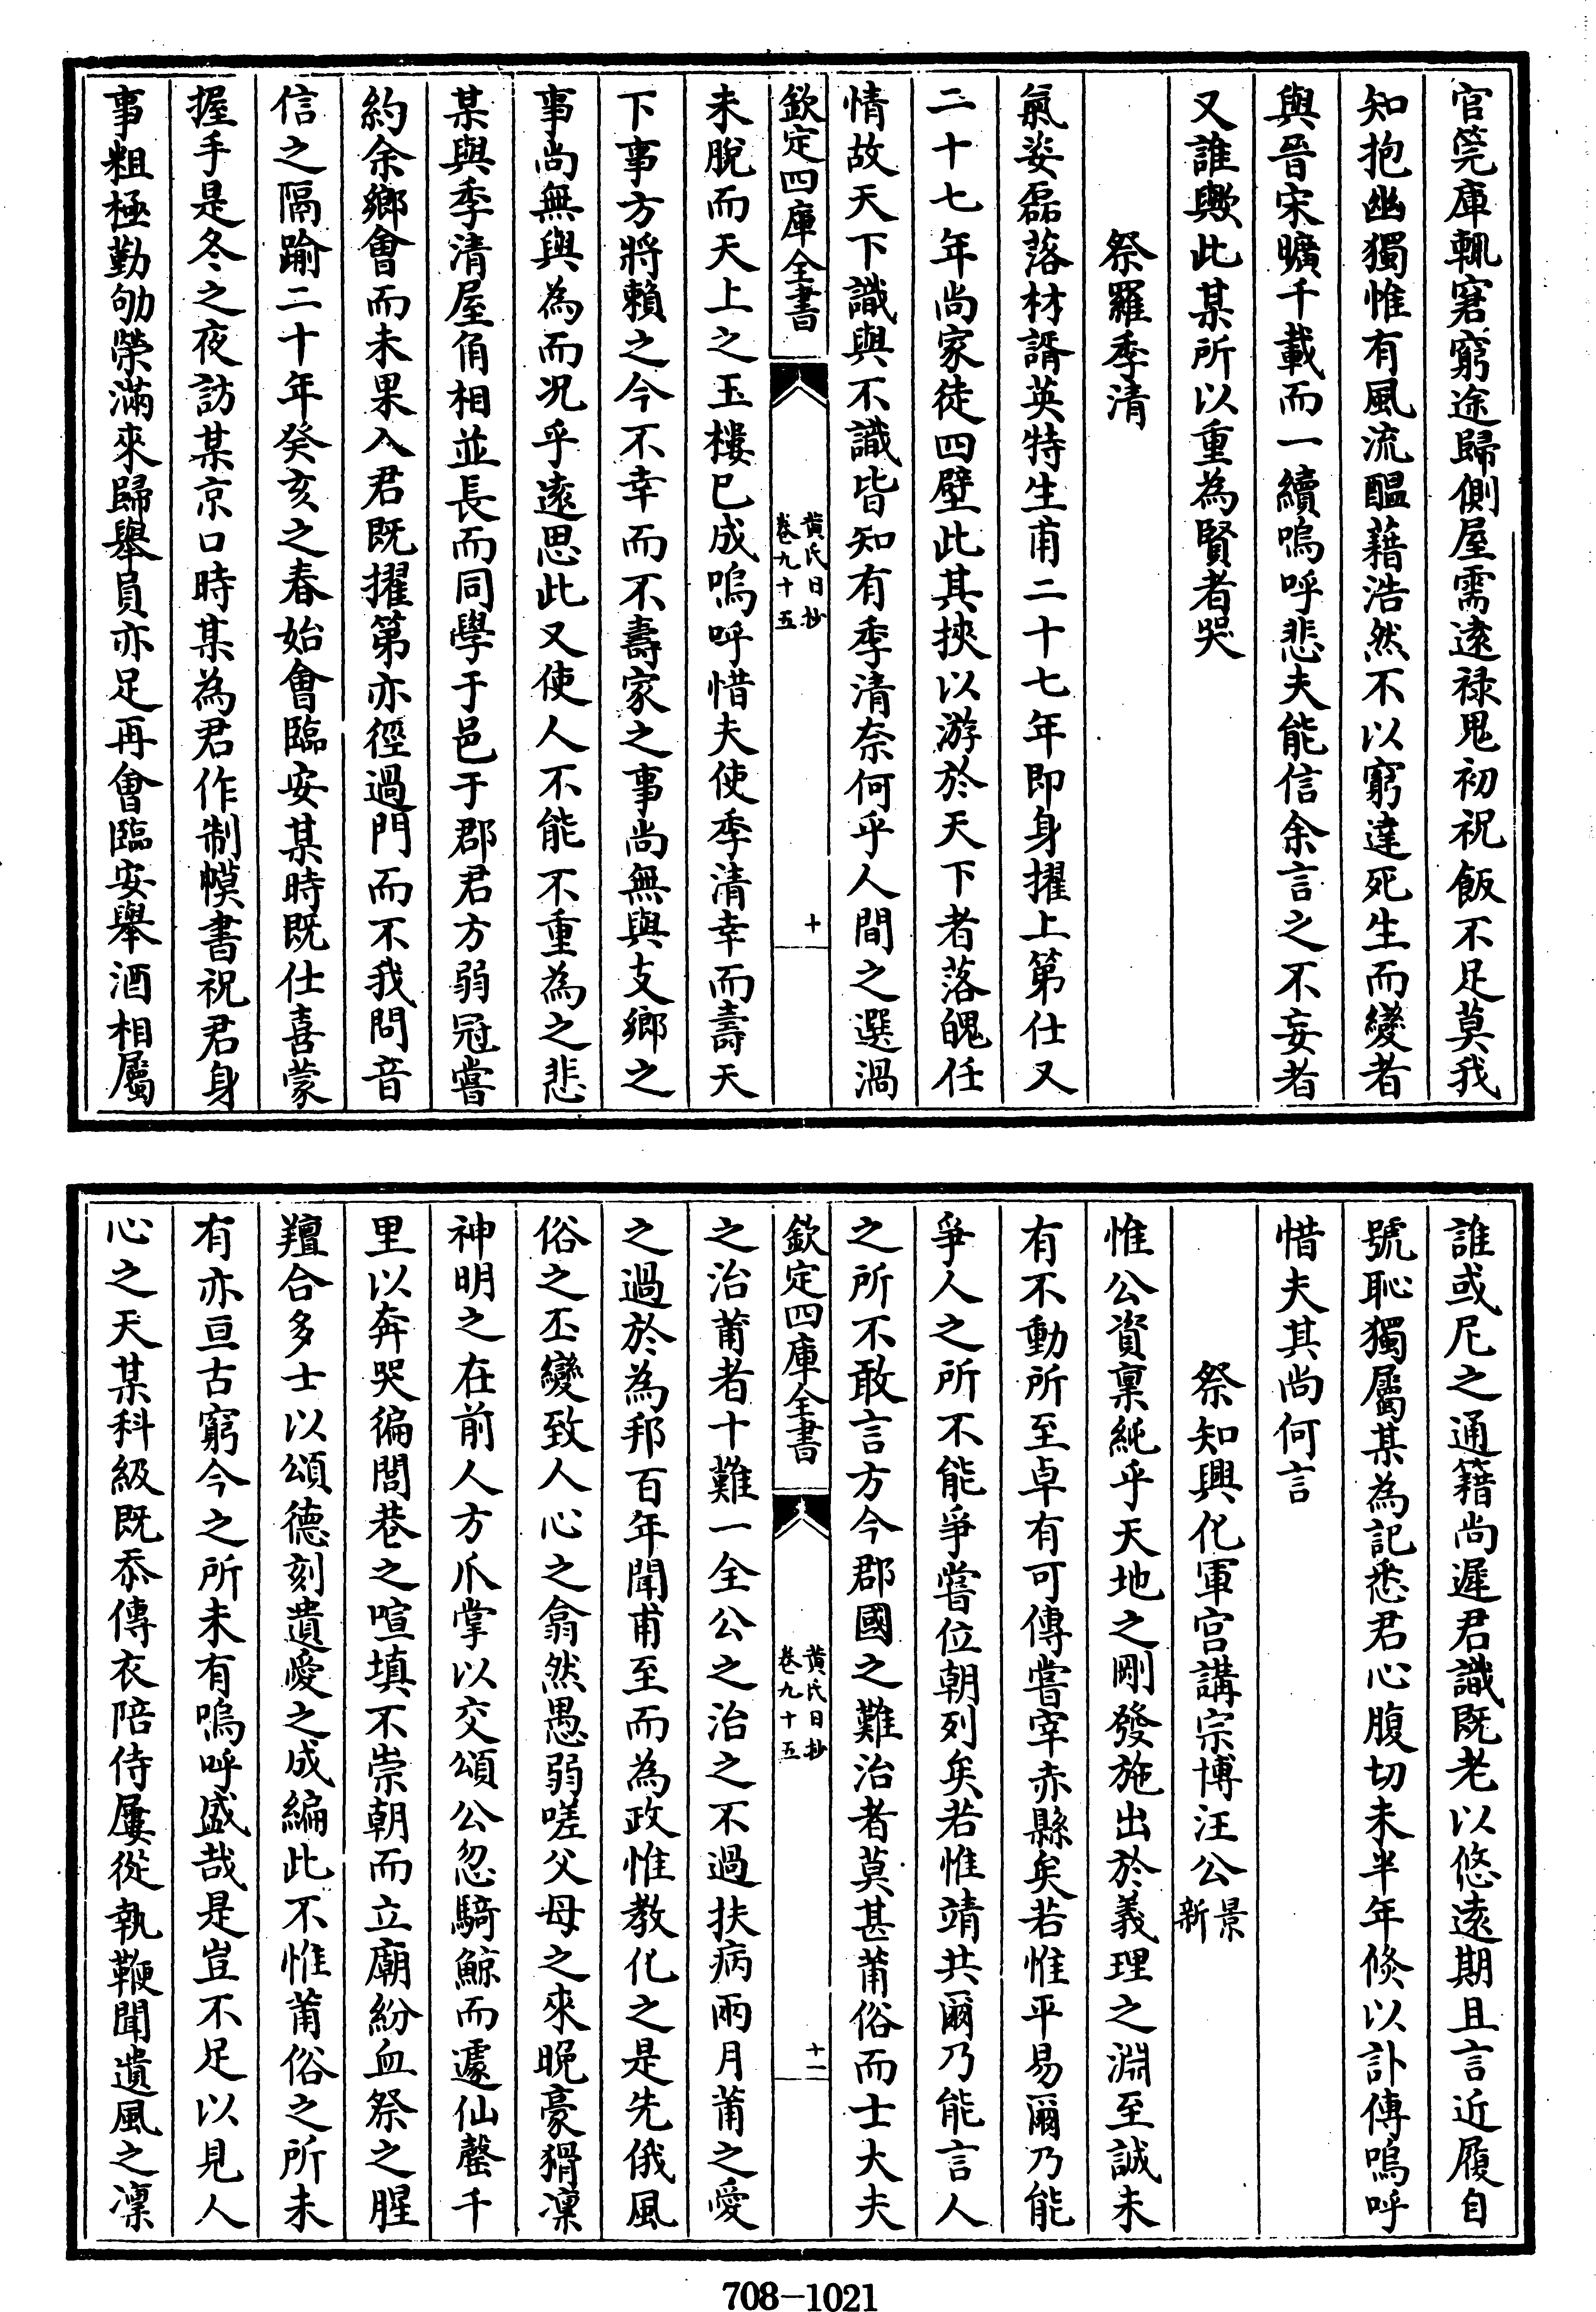 官筦庫輒窘窮途歸側屋需遠禄鬼初祝飯不足莫我
知抱幽獨惟有風流醖藉浩然不以窮達死生而變者
與晉宋曠千載而一續嗚呼悲夫能信余言之不妄者
又誰歟此某所以重為賢者哭
祭羅季清
氣姿磊落材諝英特生甫二十七年即身擢上第仕又
二十七年尚家徒四壁此其挾以游於天下者落魄任
情故天下識與不識皆知有季清奈何乎人間之選渦
欽定四庫全書
黄氏日抄
卷九十五
十
未脫而天上之玉樓已成嗚呼惜夫使季清幸而壽天
下事方將賴之今不幸而不壽家之事尚無與支鄉之
事尚無與為而况乎遠思此又使人不能不重為之悲
某與季清屋角相並長而同學于邑于郡君方弱冠嘗
約余鄉會而未果入君既擢第亦徑過門而不我問音
信之隔踰二十年癸亥之春始會臨安某時既仕喜蒙
握手是冬之夜訪某京口時某為君作制幙書祝君身
事粗極勤劬榮滿來歸舉員亦足再會臨安舉酒相屬
誰或尼之通籍尚遲君識既老以悠遠期且言近履自
號恥獨屬某為記悉君心腹切未半年倐以訃傳嗚呼
惜夫其尚何言
祭知興化軍宫講宗博汪公景新
惟公資稟純乎天地之剛發施出於義理之淵至誠未
有不動所至卓有可傳嘗宰赤縣矣若惟平易爾乃能
爭人之所不能爭嘗位朝列矣若惟靖共爾乃能言人
之所不敢言方今郡國之難治者莫甚莆俗而士大夫
欽定四庫全書
黄氏日抄
卷九十五
十一
之治莆者十難一全公之治之不過扶病兩月莆之愛
之過於為邦百年聞甫至而為政惟教化之是先俄風
俗之丕變致人心之翕然愚弱嗟父母之來晚豪猾凜
神明之在前人方爪掌以交頌公忽騎鯨而遽仙罄千
里以奔哭徧閭巷之喧填不崇朝而立廟紛血祭之腥
羶合多士以頌德刻遺愛之成編此不惟莆俗之所未
有亦亘古窮今之所未有嗚呼盛哉是豈不足以見人
心之天某科級既忝傳衣陪侍屢從執鞭聞遺風之凜
708-1021